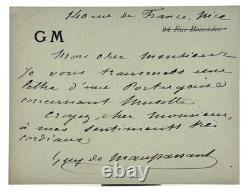 140 rue de France, Nice
24 Rue Boccador
GM
Mon cher monsieur
Je vous transmets une
lettre d'une Portugaise
concernant Musotte
Croyez cher monsieur,
à mes sentiments très
cordiaux
Guy de Maupassant